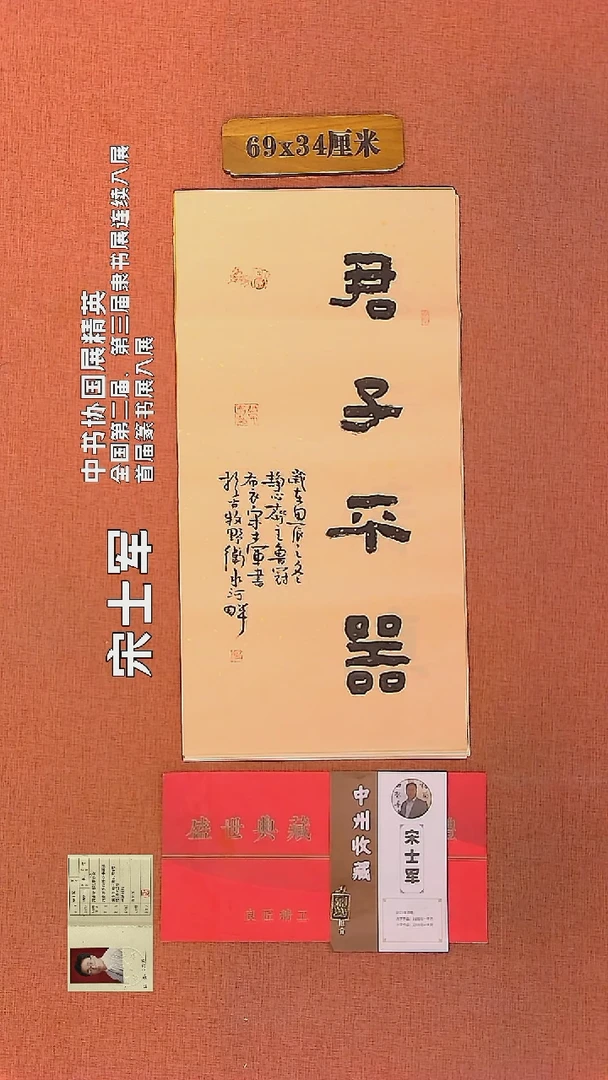 69x34厘米
中书协国展精英
全国第二届、第三届隶书展连续入展
首届篆书展入展
宋士军
君子不器
歲在甲辰之冬
静心齋主魯冠
布衣宋士軍書
於古牧野衛水河畔
盛世典藏
良匠精工
中州收藏
宋士军